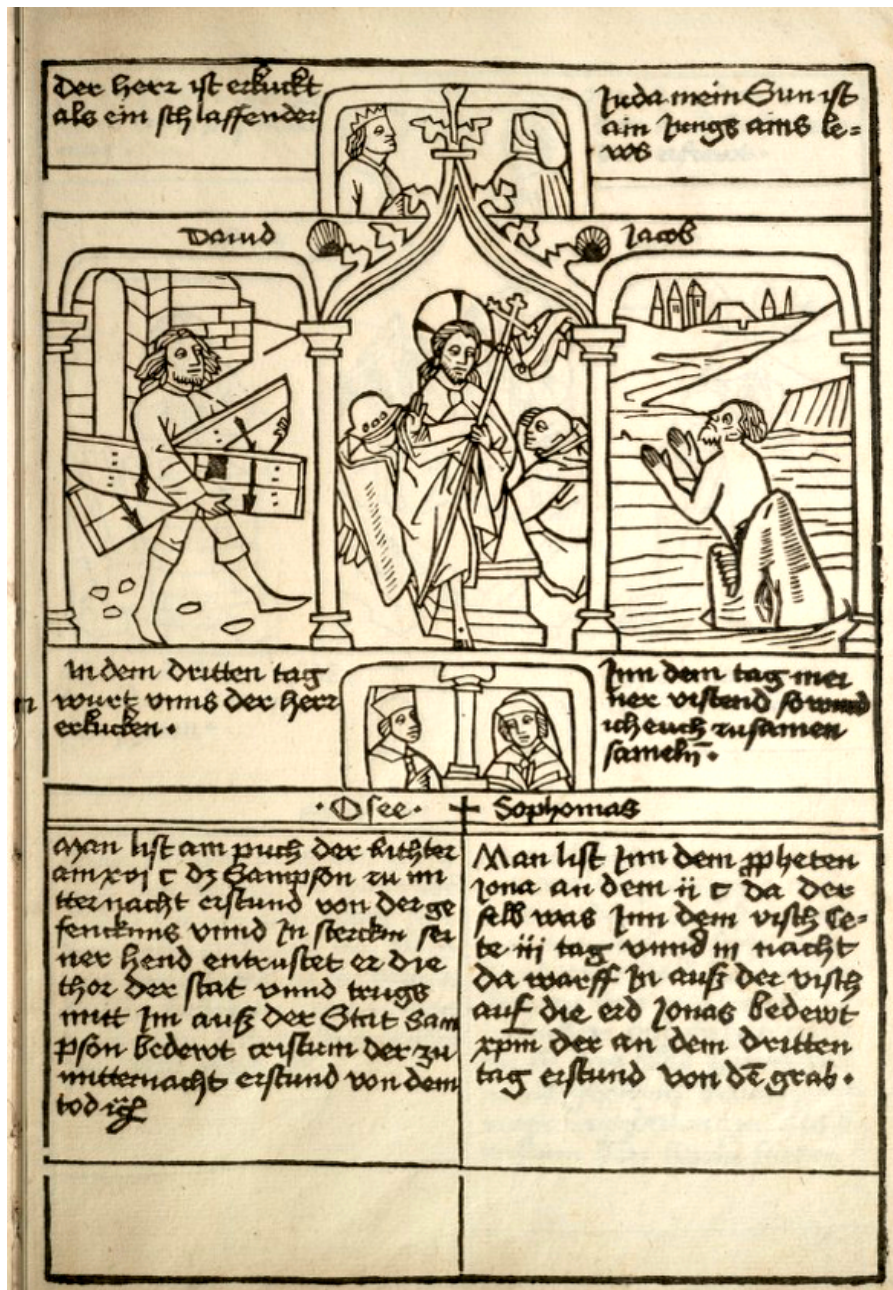 Der herr ist erkuckt
als ein schlaffender
Juda mein Sun ist
ain Jungs ains le=
ws
Dauid
Jacob
In dem dritten tag
wurt vnns der herr
erkucken.
Inn dem tag mei
ner vistend so wurd
ich euch zusamen
samelñ.
n
.Osee.
Sophonias
Man list am puch der Richter
am xvj c dz Sampson zu mi
tternacht erstund von der ge
fencknus vnnd In sterckin sei
ner hend entrustet er die
thor der stat vnnd trugs
mitt Im auß der Stat Sam
pson bedewt cristum der zu
mitternacht erstund von dem
tod
Man list Inn dem ppheten
Jona an dem ii c da der
selb was Inn dem visch le=
te iij tag vnnd iij nacht
da warff In auß der visch
auf die erd Jonas bedewt
xpm̄ der an dem dritten
tag erstund von dē grab.